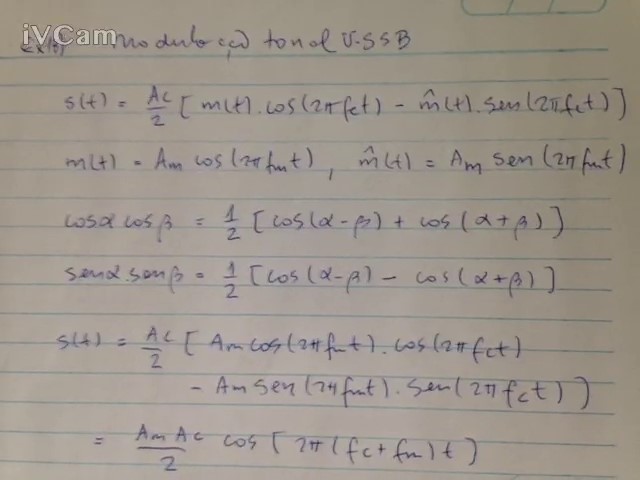 iVCam
Ex: modulação tonal U-SSB
s(t) = Ac/2 [ m(t).cos(2πfct) - m̂(t).sen(2πfct)]
m(t) = Am cos(2πfmt), m̂(t) = Am sen(2πfmt)
cosα cosβ = 1/2 [cos(α-β) + cos(α+β)]
senα.senβ = 1/2 [cos(α-β) - cos(α+β)]
s(t) = Ac/2 [ Am cos(2πfmt).cos(2πfct)
- Am sen(2πfmt).sen(2πfct)]
= AmAc/2 cos[2π(fc+fm)t]